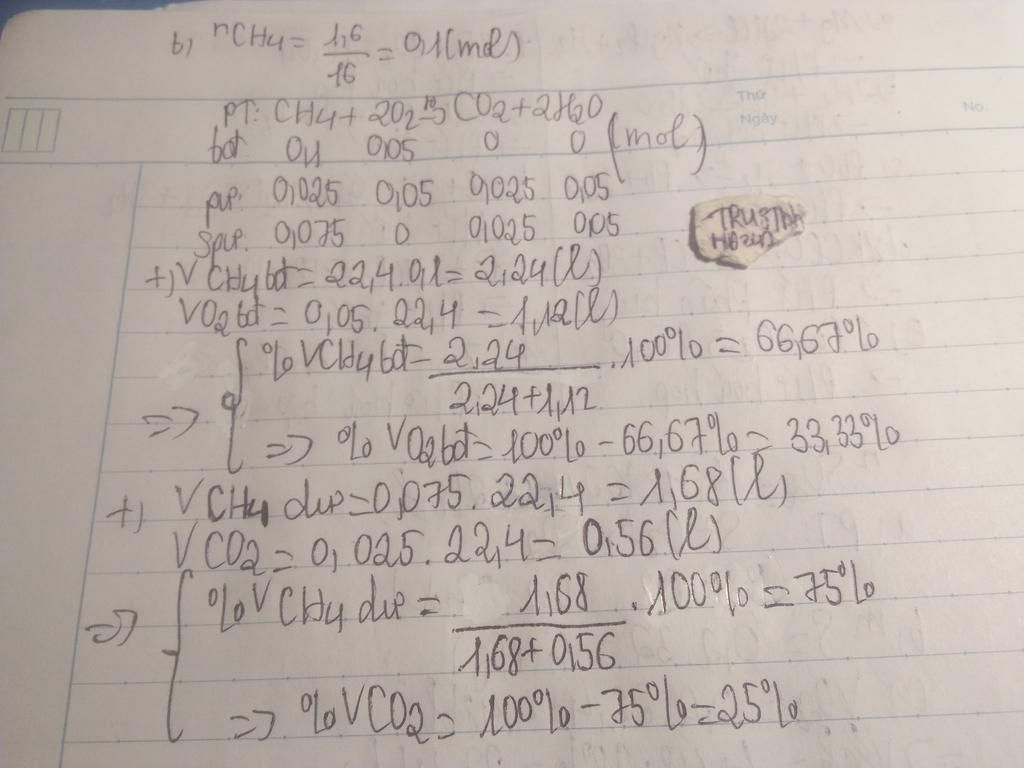 b, nCH4 = 1,6/16 = 0,1(mol)
Thứ
Ngày
No.
PT: CH4 + 2O2 -t°-> CO2 + 2H2O
bđ: 0,1 0,05 0 0 (mol)
pư: 0,025 0,05 0,025 0,05
spư: 0,075 0 0,025 0,05
+) VCH4 bđ = 22,4.0,1 = 2,24(l)
VO2 bđ = 0,05.22,4 = 1,12(l)
=> { %VCH4 bđ = 2,24/(2,24+1,12) .100% = 66,67%
=> %VO2 bđ = 100% - 66,67% = 33,33%
+) VCH4 dư = 0,075.22,4 = 1,68(l)
VCO2 = 0,025.22,4 = 0,56(l)
=> { %VCH4 dư = 1,68/(1,68+0,56) .100% = 75%
=> %VCO2 = 100% - 75% = 25%